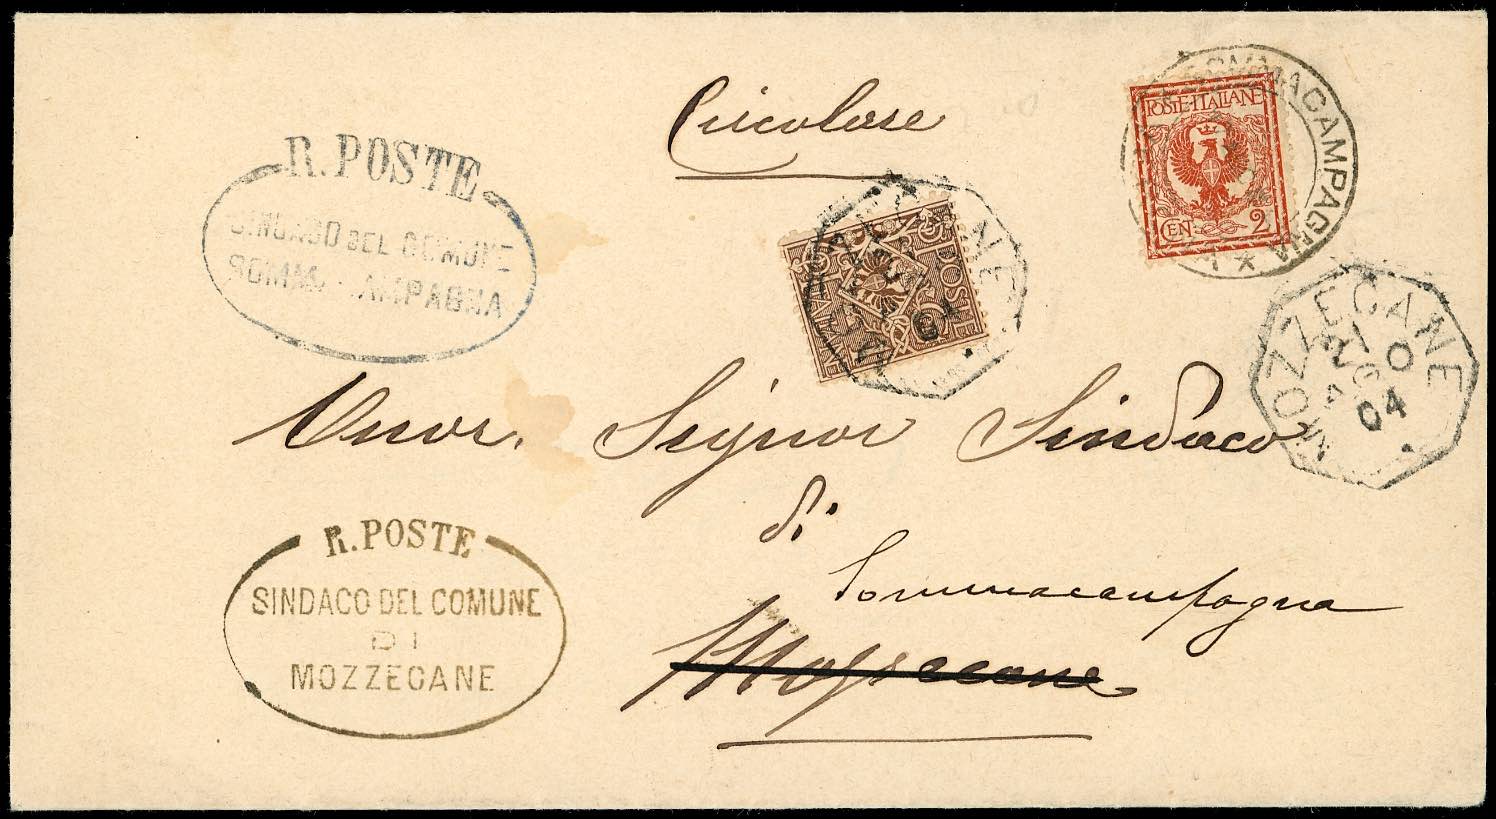 Circolare
POSTE·ITALIANE
CEN. 2
SOMMACAMPAGNA
R. POSTE
SINDACO DEL COMUNE
SOMMACAMPAGNA
MOZZECANE
04
POSTE
MOZZECANE
10
04
Onor. Signor Sindaco
di
Sommacampagna
Mozzecane
R. POSTE
SINDACO DEL COMUNE
DI
MOZZECANE